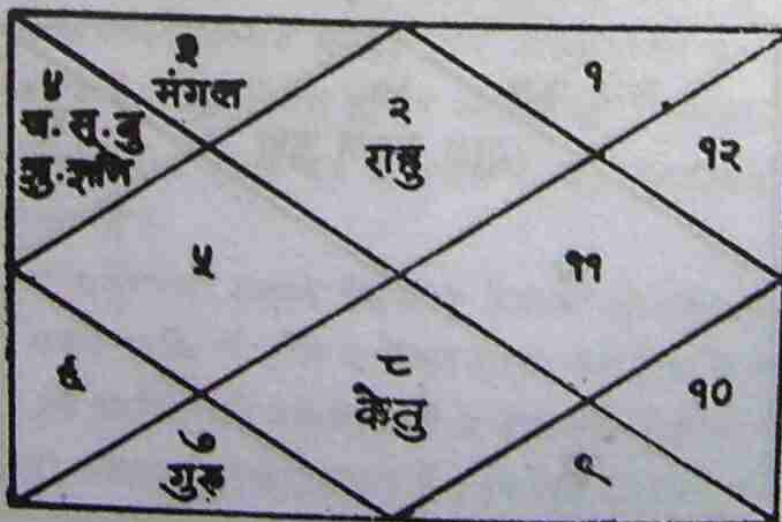 ३
मंगल
१
४
च. सू. बु
शु. शनि
२
राहु
१२
५
११
६
८
केतु
१०
७
गुरु
९